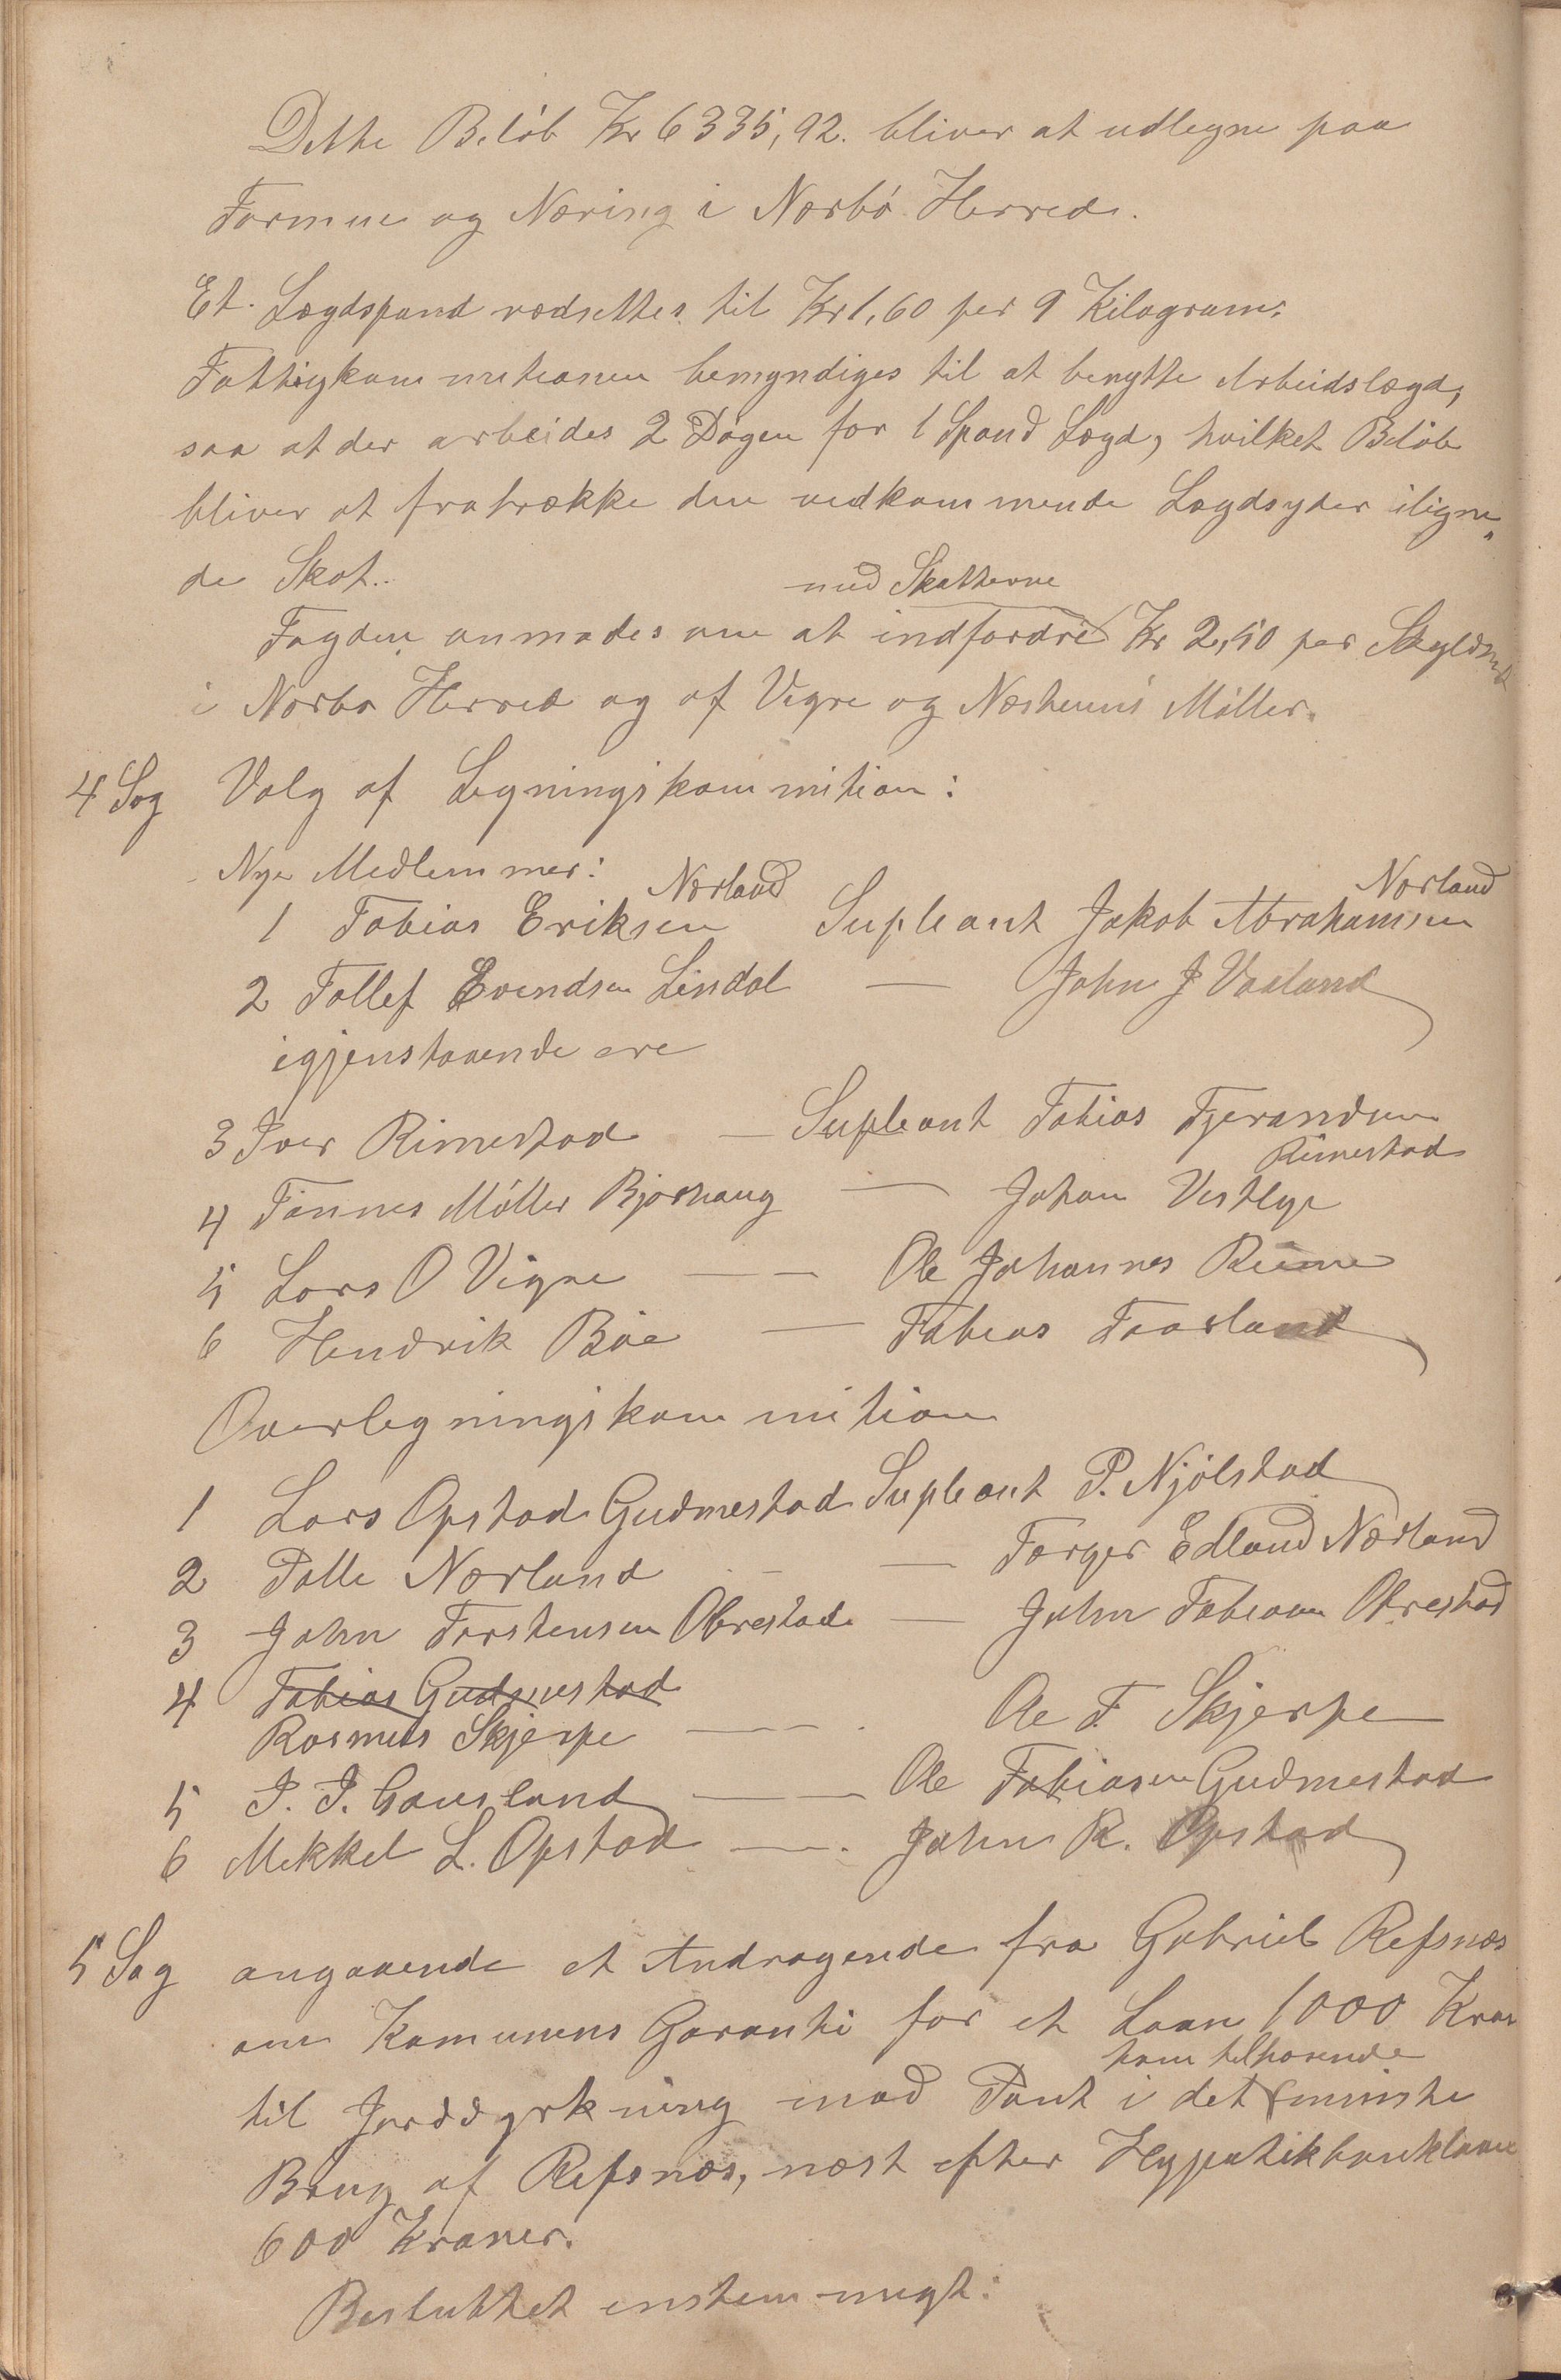 Dette Beløb Kr 6335,92. bliver at udlegne paa
Formue og Næring i Nærbø Herred.
Et Lægdspand vædsettes til Kr 1,60 per 9 Kilogram.
Fattigkommitionen bemyndiges til at benytte Arbeidslægd,
saa at der arbeides 2 Dagen for 1 Spand Lægd, hvilket Beløb
bliver at fratrække den vedkommende Lægdsyder iligne„
de Skat.
med Skatterne
Fogden anmodes om at indfordre Kr 2,50 per Skyldmk
i Nærbø Herred og af Vigre og Næsheims Møller.
4 Sag Valg af Legningskommition:
Nye Medlemmer:
Nærland Nærland
1 Tobias Eriksen Supleant Jakob Abrahamsen
2 Tollef Evendsen Lindal — John J Vasland
igjenstaaende ere
3 Iver Rimestad — Supleant Tobias Tjerandsen
Rimestad
4 Tønnes Møller Bjorhaug — Johan Vestlye
5 Lars O Vigre — — Ole Johannes Rime
6 Hendrik Bøe — Tobias Taarland
Overlegningskommition
1 Lars Opstad Gudmestad Supleant P. Njølstad
2 Palle Nærland — Torger Edland Nærland
3 John Torstensen Obrestad — John Tobiasen Obrestad
4 Tobias Gudmestad
Rasmus Skjerpe — — Ole T. Skjerpe
5 J. J. Gausland — — Ole Tobiasen Gudmestad
6 Mekkel L. Opstad — John R. Opstad
5 Sag angaaende et Andragende fra Gabriel Refsnæs
om Komunens Garanti for et Laan 1000 Kroner
ham tilhørende
til Jorddyrkning mod Pant i det minste
Brug af Refsnæs, næst efter Hypotikbanklaan
600 Kroner.
Besluttet enstemmigt: